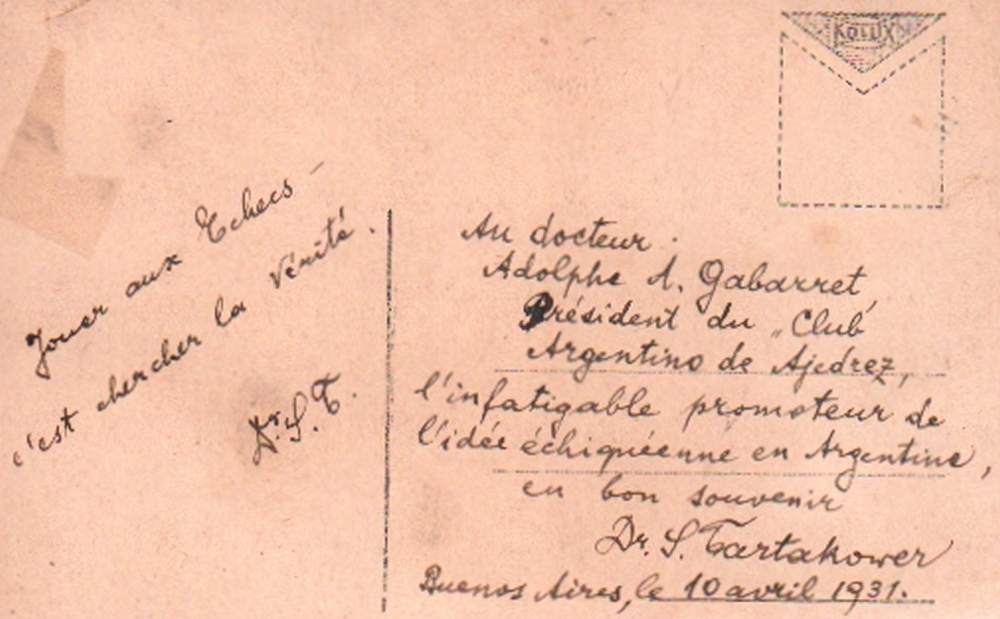 KOLUX
Jouer aux Echecs –
c'est chercher la Vérité.
Dr. S. T.
Au docteur
Adolphe A. Gabarret,
Président du „Club
Argentino de Ajedrez,
l'infatigable promoteur de
l'idée échiquéenne en Argentine,
en bon souvenir
Dr. S. Tartakower
Buenos Aires, le 10 avril 1931.